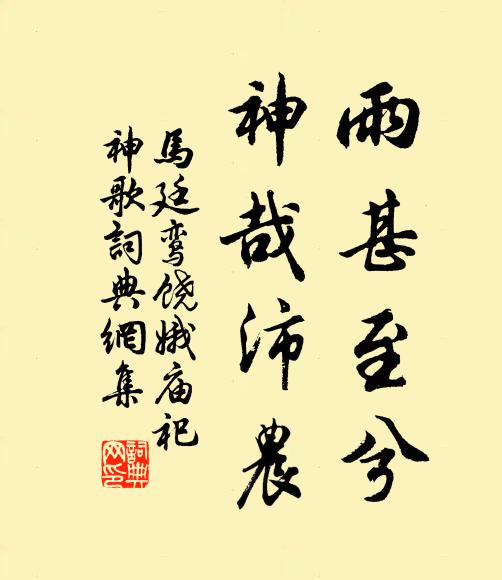 雨甚至兮
神哉沛農
馬廷鸾饶娥庙祀
神歌詞典網集
詞典
网印